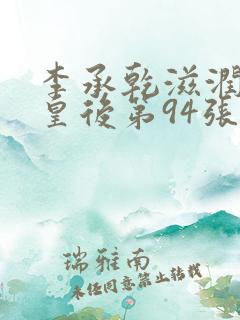 李承乾滋潤
皇後第94張
瑞雅南
未任同意禁止转載